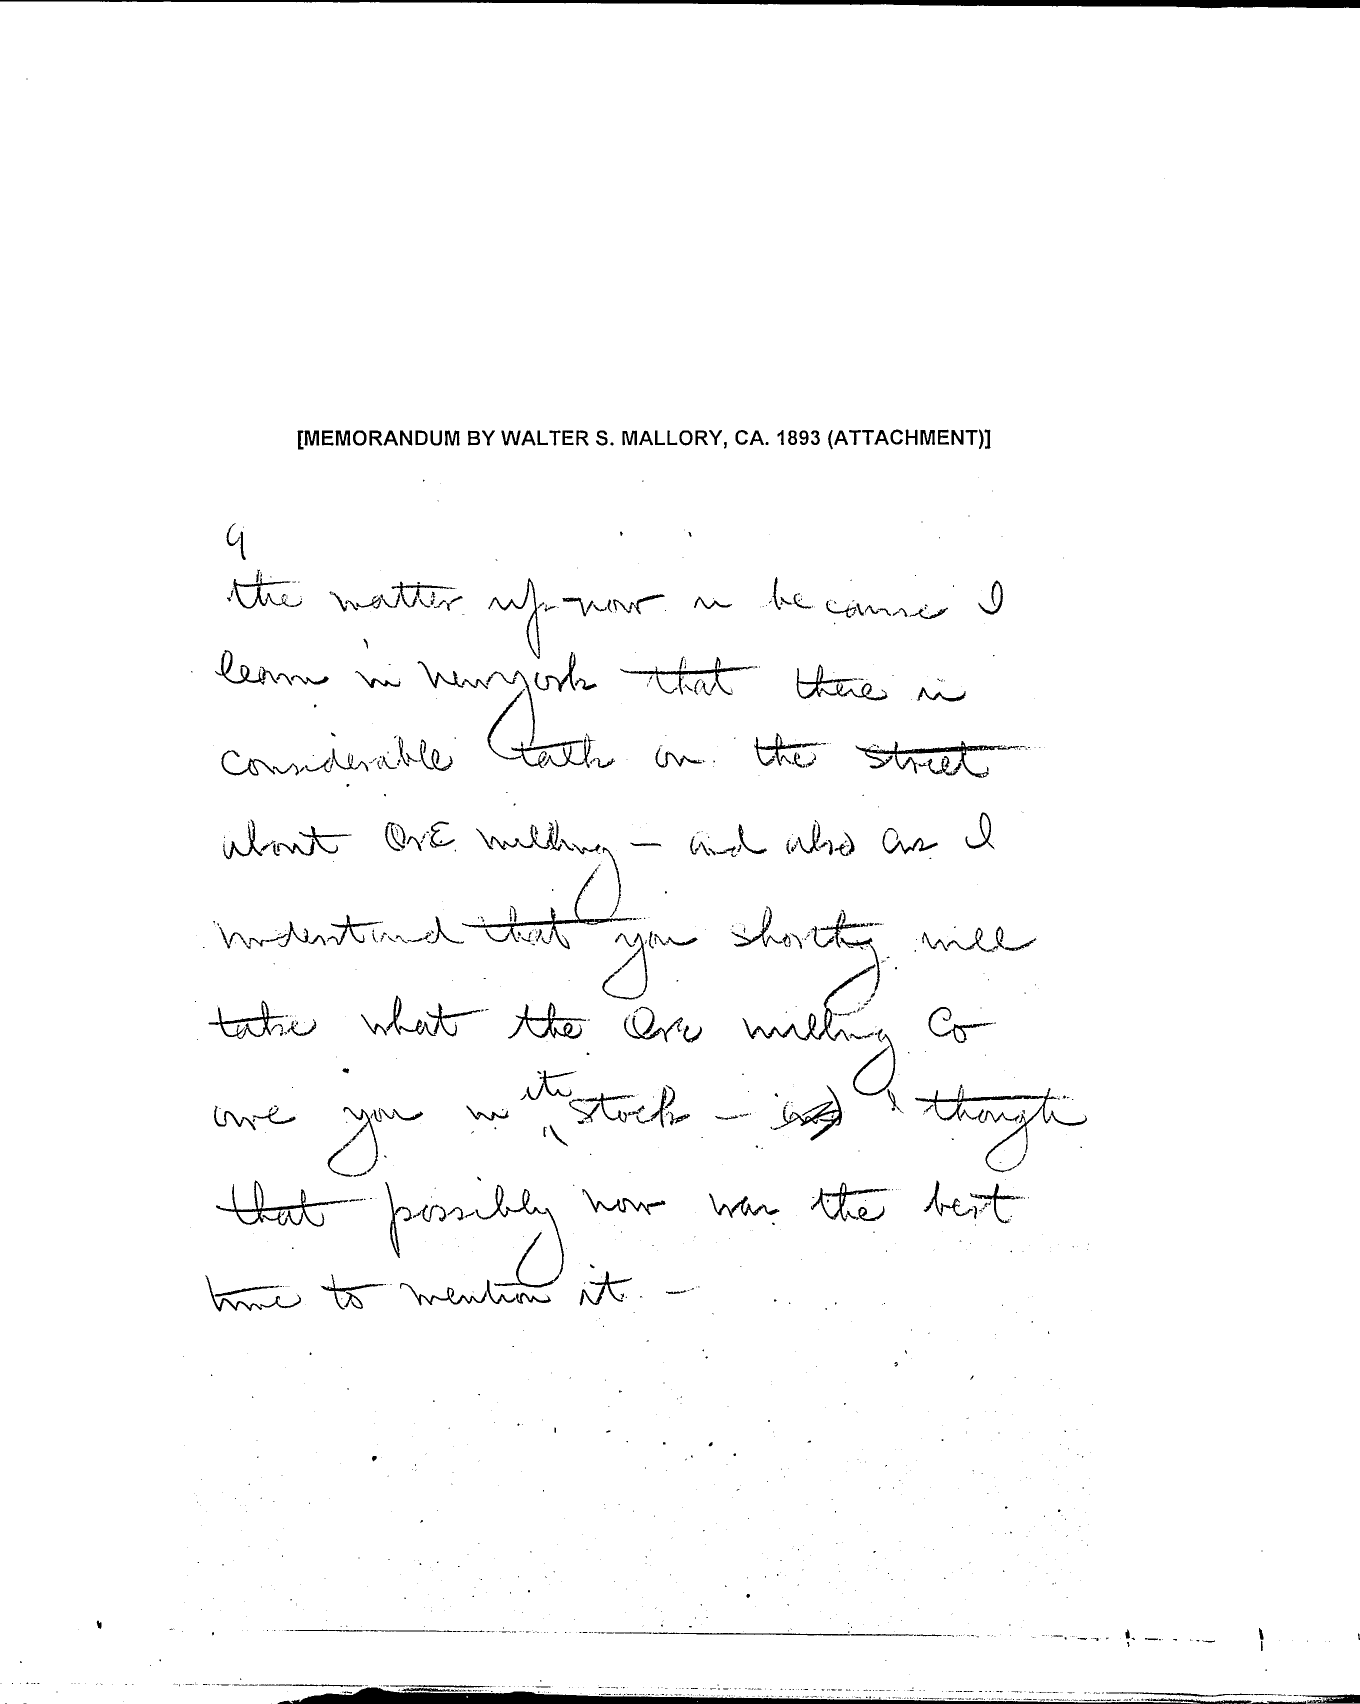 [MEMORANDUM BY WALTER S. MALLORY, CA. 1893 (ATTACHMENT)]
9
the matter up now is because I
learn in New york that there is
considerable talk on the street
about OrE milling — and also as I
understand that you shortly will
take what the Ore milling Co
owe you in its stock — I though
that possibly now was the best
time to mention it —